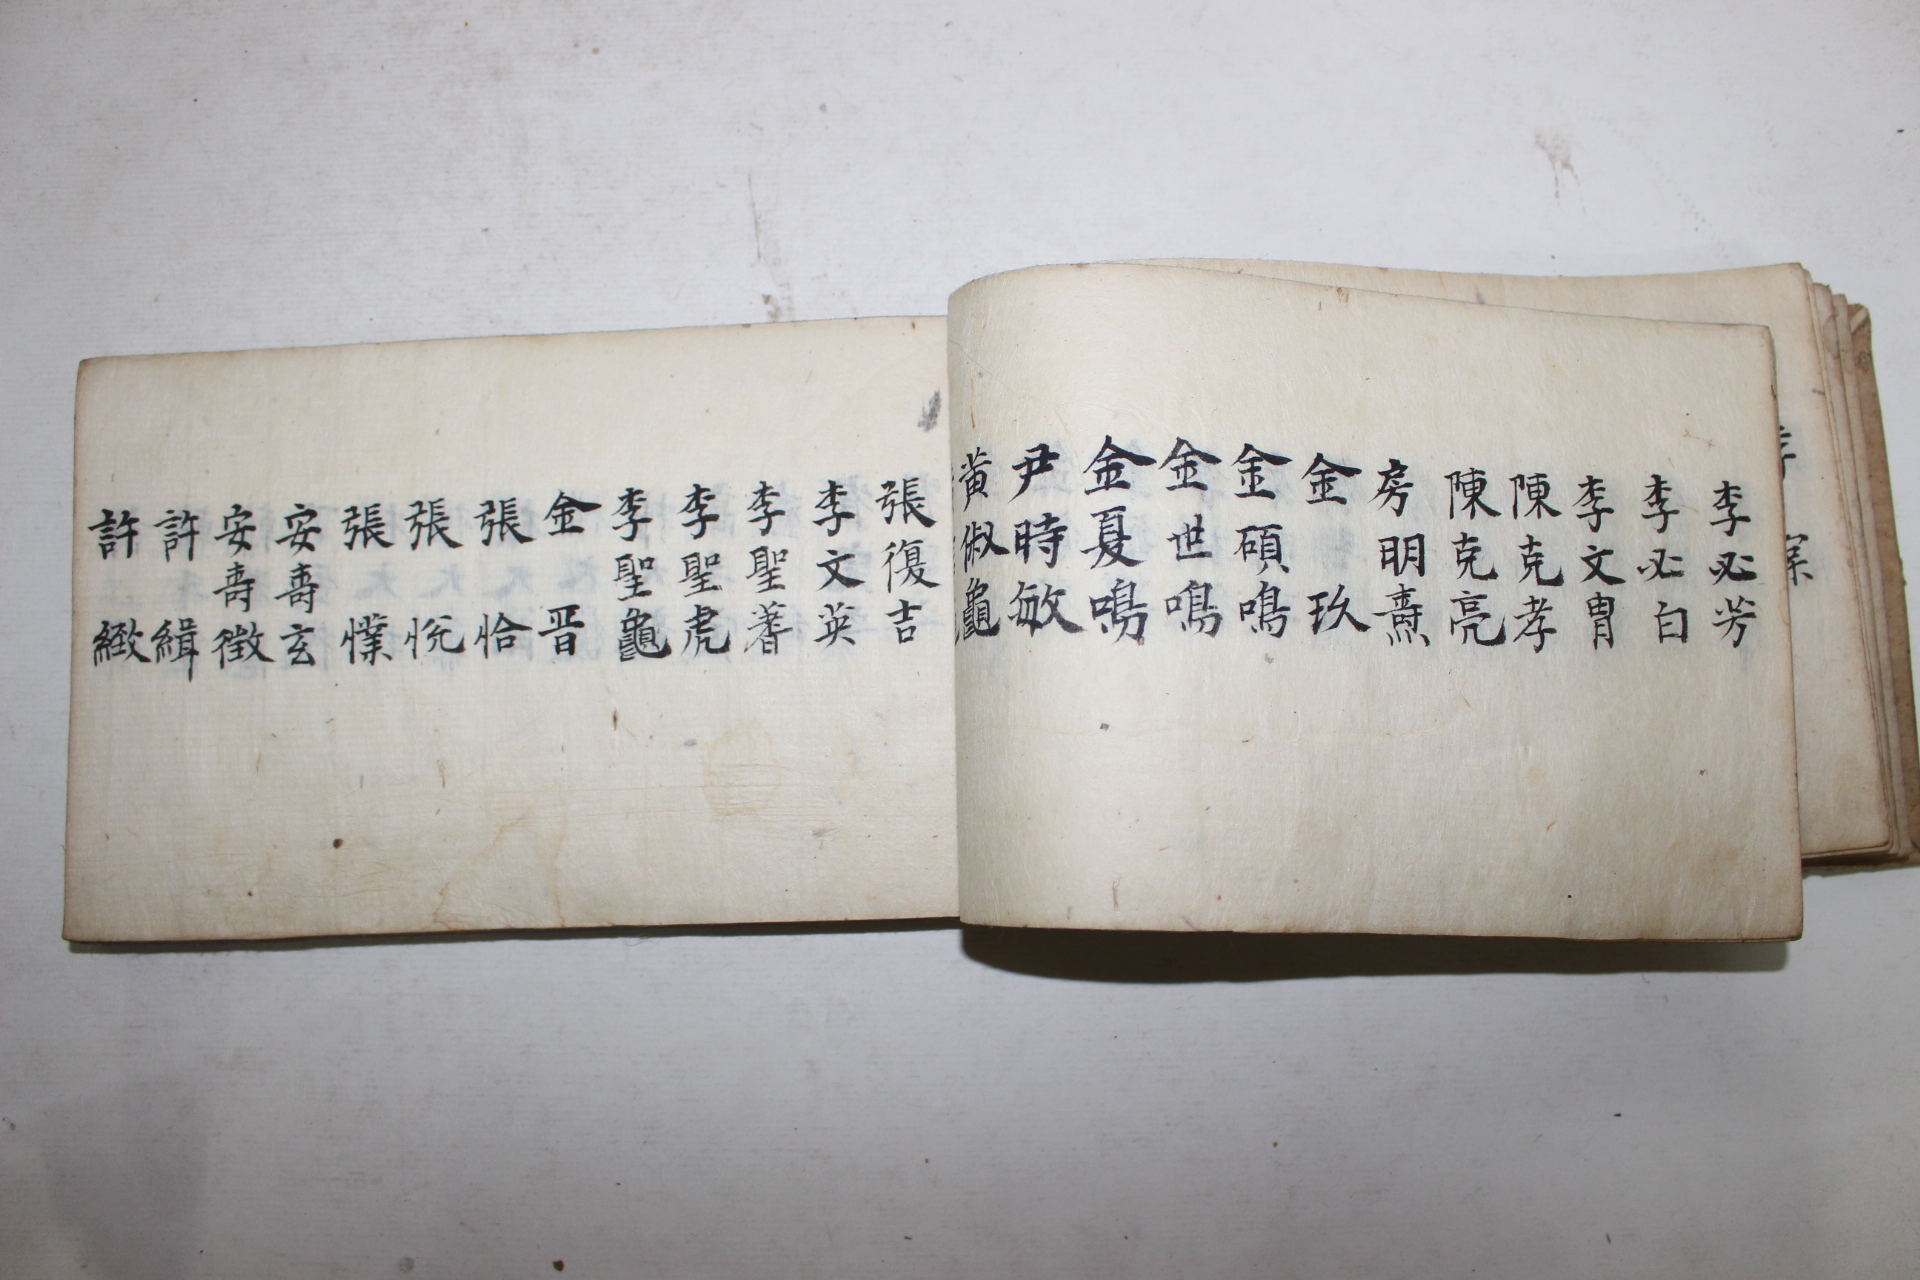 李必芳
李必白
李文冑
陳克孝
陳克亮
房明燾
金玖
金碩鳴
金世鳴
金夏鳴
尹時敏
黃俶龜
張復吉
李文英
李聖蓍
李聖虎
李聖龜
金晋
張恰
張悅
張懹
安壽玄
安壽徵
許緝
許緻